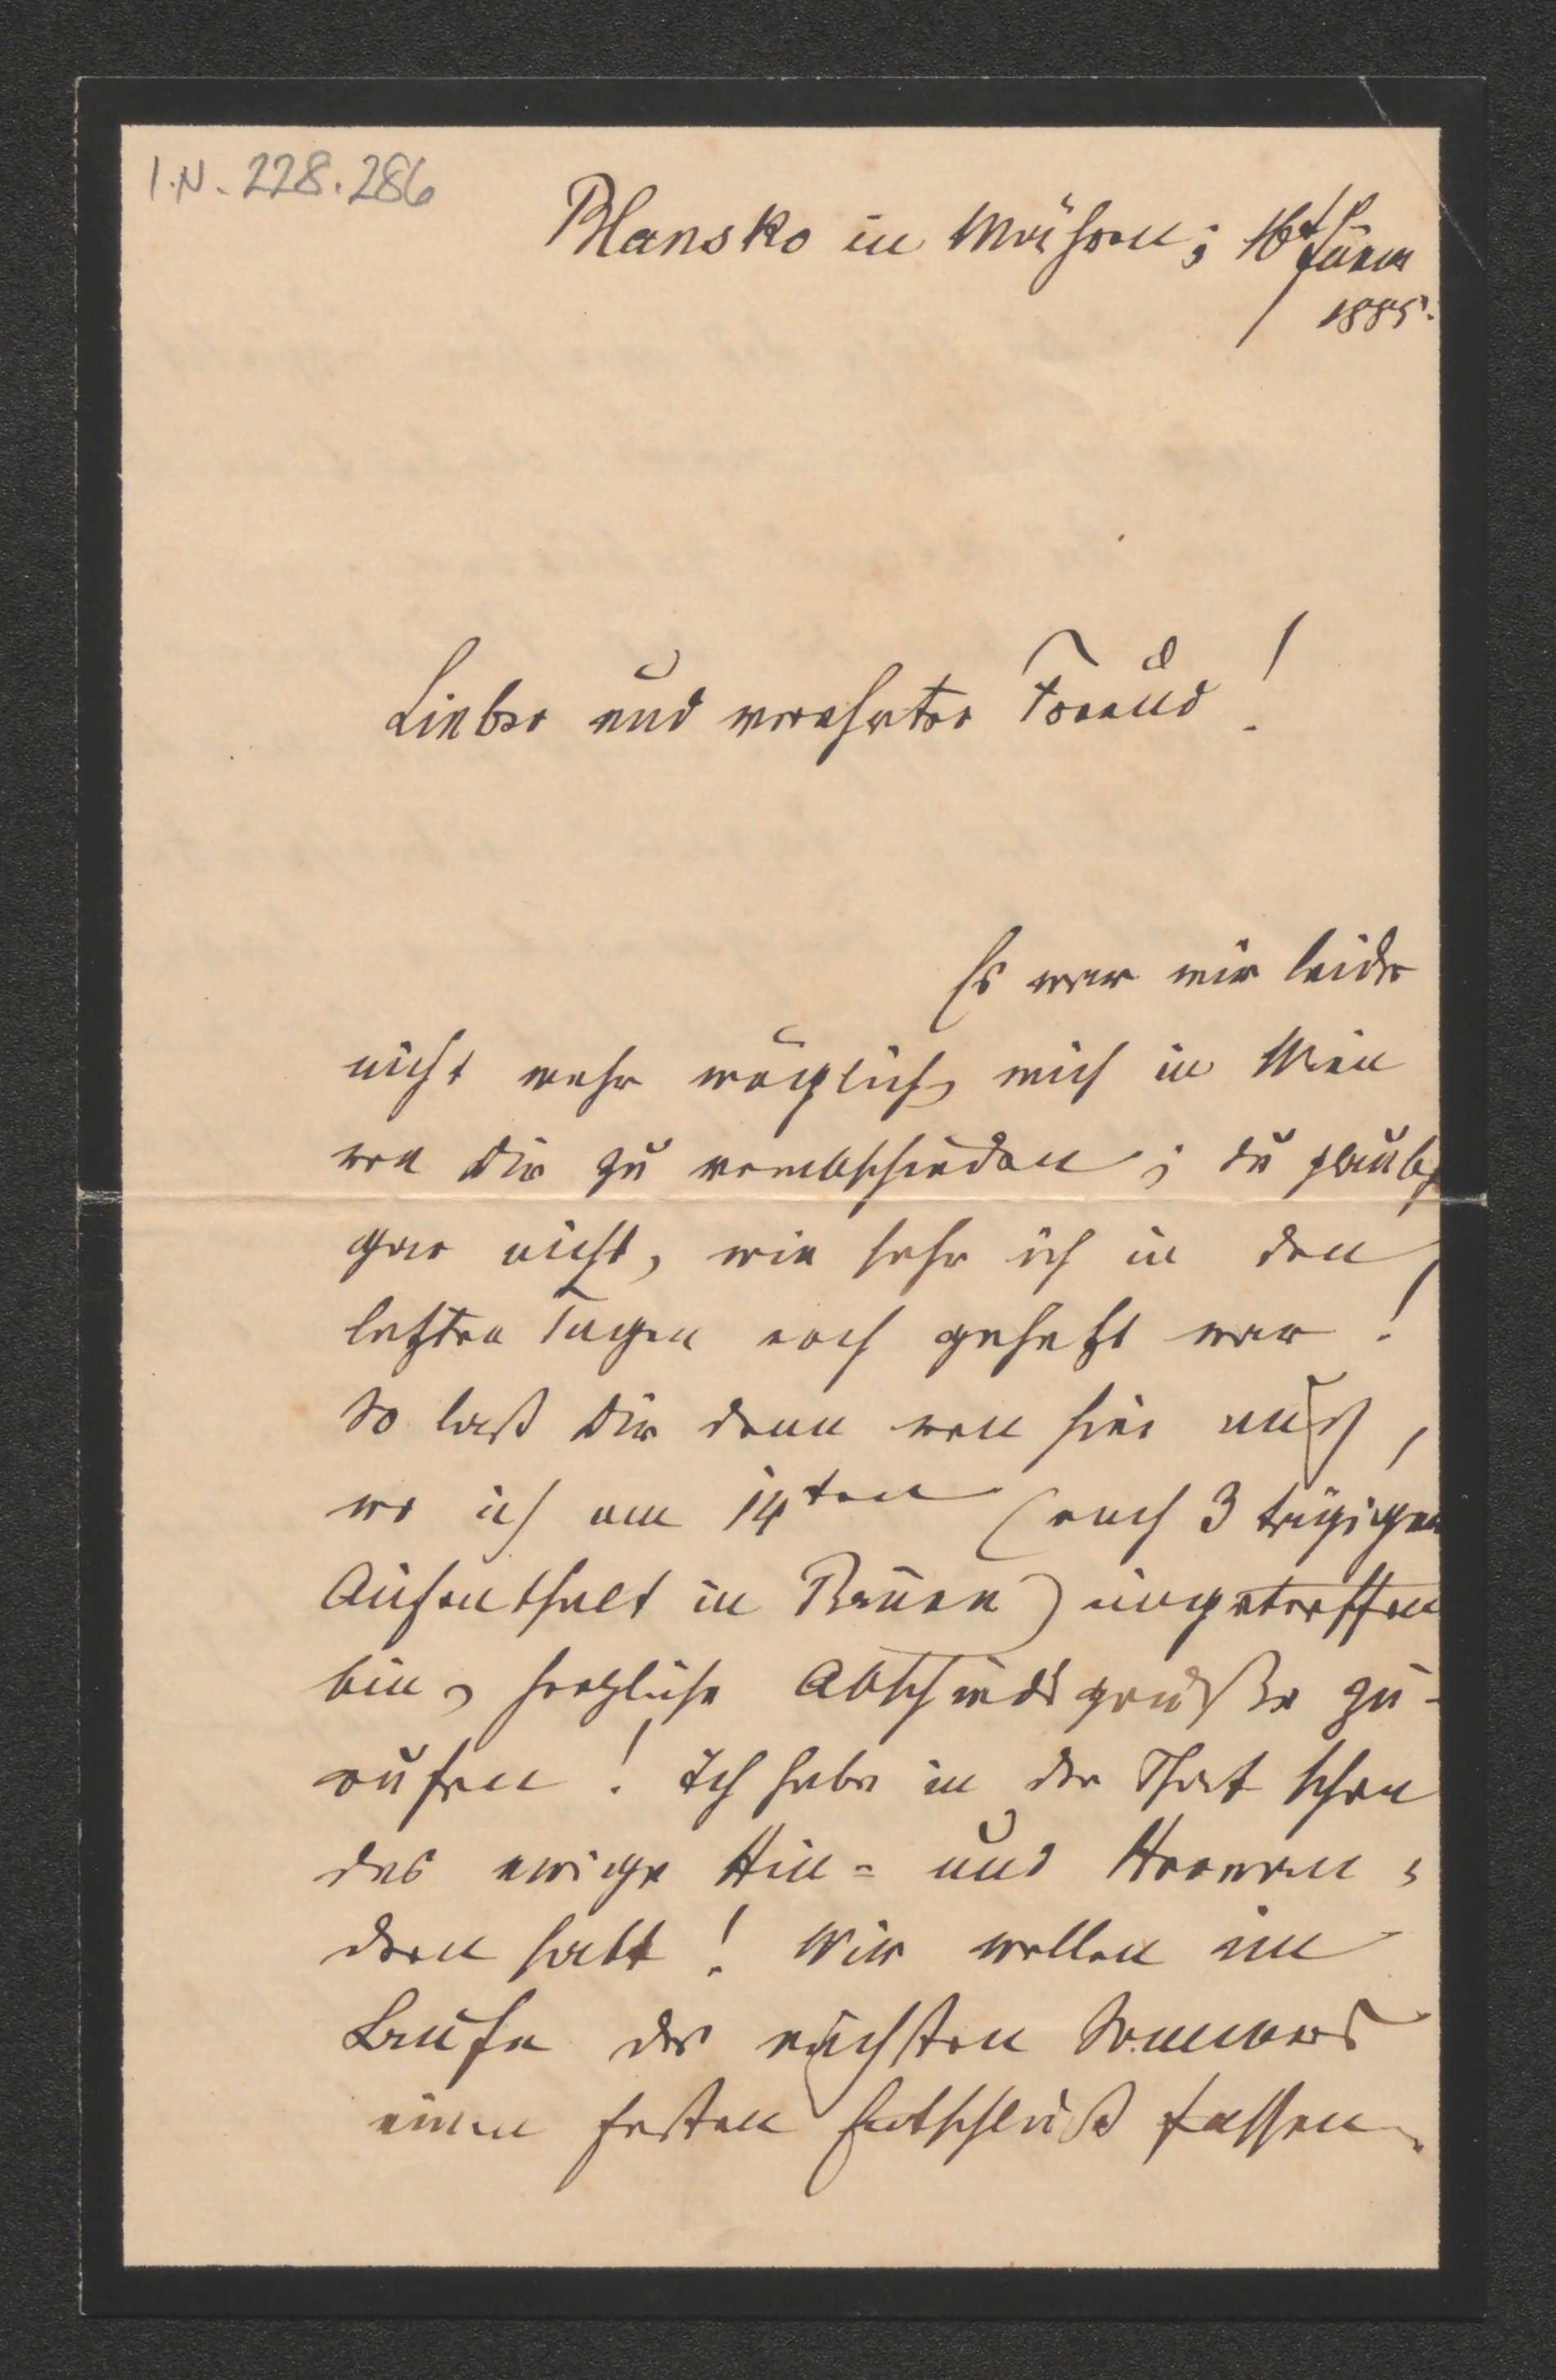 I.N. 228.286
Blansko in Mähren; 16t
1885.
Lieber und verehrter Freund!
Es war mir leider
nicht mehr möglich, mich in Wien
von Dir zu verabschieden; du glaubst
gar nicht, wie sehr ich in den
letzten Tagen noch gehetzt war!
So laß Dir denn von hier aus,
wo ich am 14ten (nach 3 tägigen
Aufenthalt in Brünn) eingetroffen
bin, herzliche Abschiedsgrüße zu-
rufen! Ich habe in der That schon
das ewige Hin- und Herwan-
dern satt! Wir wollen im
Laufe des nächsten Sommers
einen festen Entschluß fassen